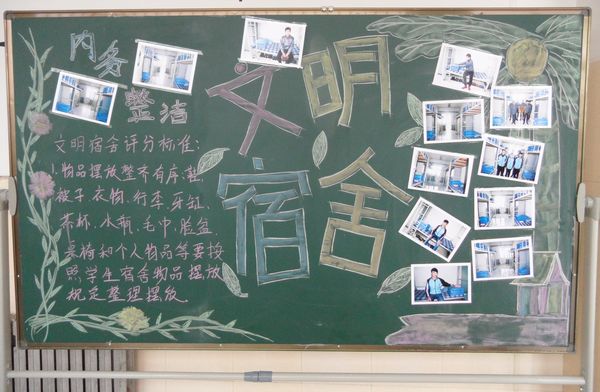 内务
整洁
文明
宿舍
文明宿舍评分标准:
1.物品摆放整齐有序,鞋、
被子、衣物、行李、牙缸、
茶杯、水瓶、毛巾、脸盆、
桌椅和个人物品等要按
照学生宿舍物品摆放
规定整理摆放